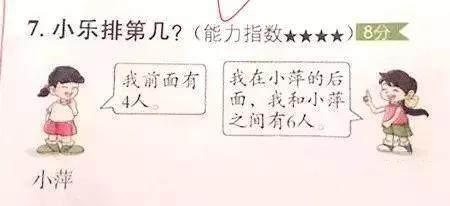 7. 小乐排第几?(能力指数★★★★) 8分
我前面有
4人。
我在小萍的后
面，我和小萍
之间有6人。
小萍